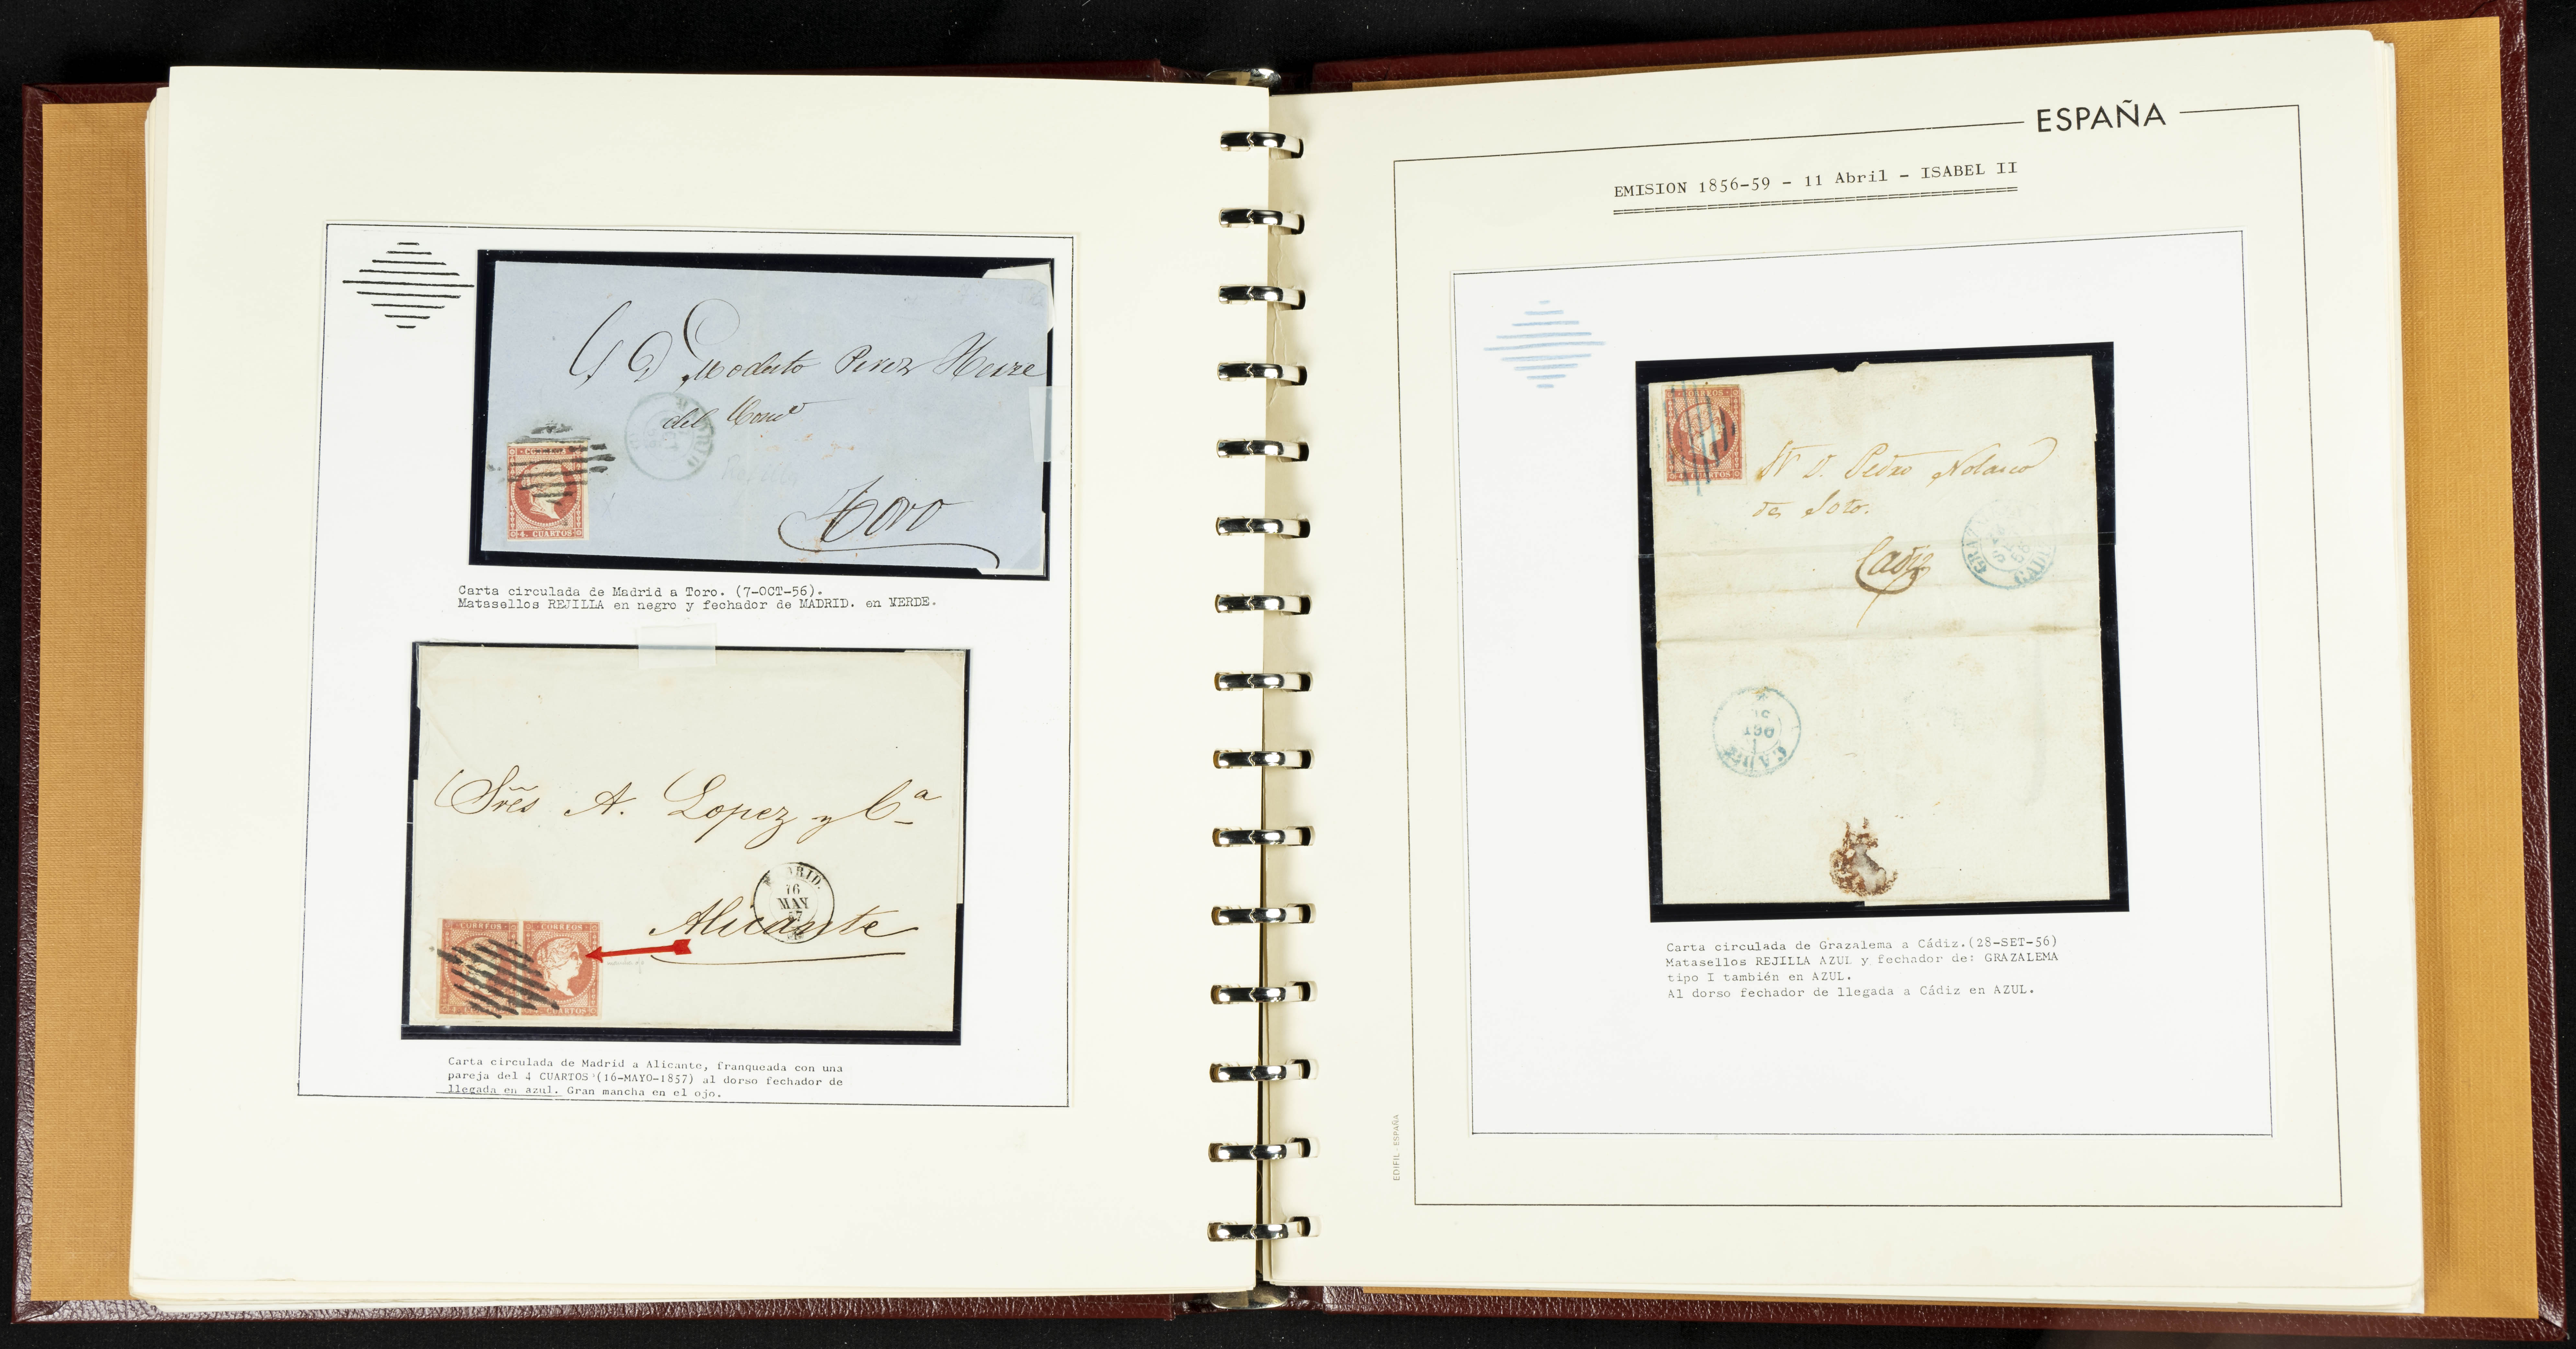 CORREOS
4. CUARTOS
MADRID
Perez
del
Rejilla
Toro
Carta circulada de Madrid a Toro. (7-OCT-56).
Matasellos REJILLA en negro y fechador de MADRID. en VERDE.
Sres A. Lopez y Cª
MADRID.
16
MAY
57
Alicante
CORREOS
CORREOS
CUARTOS
Carta circulada de Madrid a Alicante, franqueada con una
pareja del 4 CUARTOS (16-MAYO-1857) al dorso fechador de
llegada en azul. Gran mancha en el ojo.
ESPAÑA
EMISION 1856-59 - 11 Abril - ISABEL II
CORREOS
CUARTOS
Sr D. Pedro Nolasco
de Soto.
Cadiz
CADIZ
1
OCT
Carta circulada de Grazalema a Cádiz.(28-SET-56)
Matasellos REJILLA AZUL y fechador de: GRAZALEMA
tipo I también en AZUL.
Al dorso fechador de llegada a Cádiz en AZUL.
EDIFIL - ESPAÑA